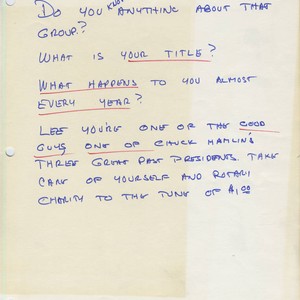 Do you know anything about that
group?
What is your title?
What happens to you almost
every year?
Lee you're one of the good
guys one of Chuck Hamlins
three great past presidents take
care of yourself and Rotari
charity to the tune of $1.00